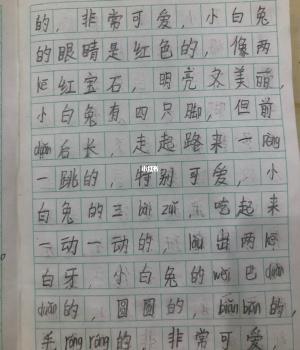 的，非常可爱，小白兔
的眼睛是红色的，像两
kē红宝石，明亮又美丽，
小白兔有四只脚，但前
duǎn后长，走起路来一
一跳的，特别可爱，小
白兔的三 zuǐ，吃起来
一动一动的，lòu出两kē
白牙，小白兔的wěi巴
duǎn的，圆圆的，biǎnbiǎn的，
毛róngróng的，非常可爱，
小红书